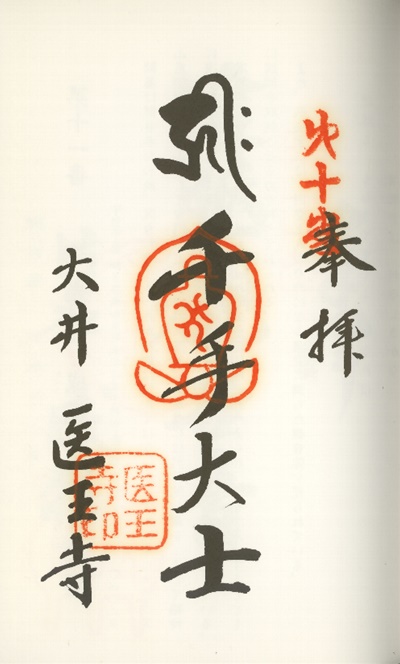 第十番
奉拝
千手大士
大井 医王寺
医王
寺印